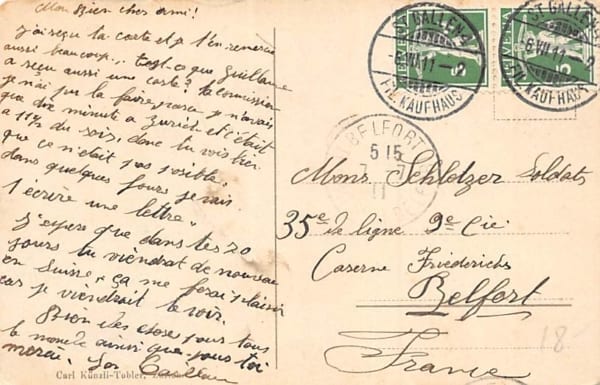 Mon Bien cher ami!
J'ai reçu la carte et je t'en remercie
aussi beaucoup... Est-ce que Guillaume
a reçu aussi une carte? la comission
je n'ai pu la faire, parce que je n'avais
que dix minute a Zurich et c'était
a 11½ du soir, donc tu vois bien
que ce n'était pas possible.
dans quelques jours je vais
t'écrire une lettre.
J'espère que dans tes 20
jours tu viendrat de nouveau
en Suisse, ça me ferai plaisir
car je viendrait te voir.
Bien des chose pour tous
le monde ainsi que pour toi
Carl Künzli-Tobler, Zürich
ST. GALLEN
6.VII.11-2
FIL. KAUFHAUS
HELVETIA
5
ST. GALLEN
6.VII.11-2
FIL. KAUFHAUS
HELVETIA
5
BELFORT
5 15
7-7
11
Mons. Schlotzer Soldats
35e de ligne 9e Cie
Caserne Friederichs
Belfort
France
18-